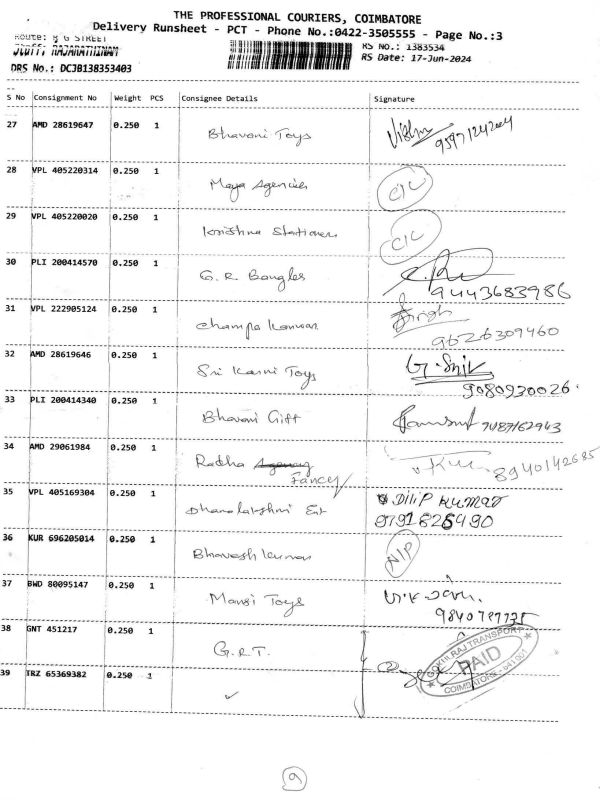 THE PROFESSIONAL COURIERS, COIMBATORE
Delivery Runsheet - PCT - Phone No.:0422-3505555 - Page No.:3
Route: R G STREET
Staff: RAJARATHINAM
RS No.: 1383534
RS Date: 17-Jun-2024
DRS No.: DCJB138353403
S No Consignment No Weight PCS Consignee Details Signature
27 AMD 28619647 0.250 1 Bhavani Toys 9597124204
28 VPL 405220314 0.250 1 Maya Agencies C/L
29 VPL 405220020 0.250 1 Krishna Stationers C/L
30 PLI 200414570 0.250 1 G. R. Bangles 9443683986
31 VPL 222905124 0.250 1 Champa Kanwar 9626309460
32 AMD 28619646 0.250 1 Sri Karni Toys 9080930026.
33 PLI 200414340 0.250 1 Bhavani Gift 7487162943
34 AMD 29061984 0.250 1 Radha Agency Fancy 8940142685
35 VPL 405169304 0.250 1 Dhanalakshmi Ent Dilip Kumar
9791825490
36 KUR 696205014 0.250 1 Bhavesh Kumar N/P
37 BWD 80095147 0.250 1 Mansi Toys
38 GNT 451217 0.250 1 G.R.T.
39 TRZ 65369382 0.250 1 ✓ (2)
GOKUL RAJ TRANSPORT
PAID
COIMBATORE - 641 001
9